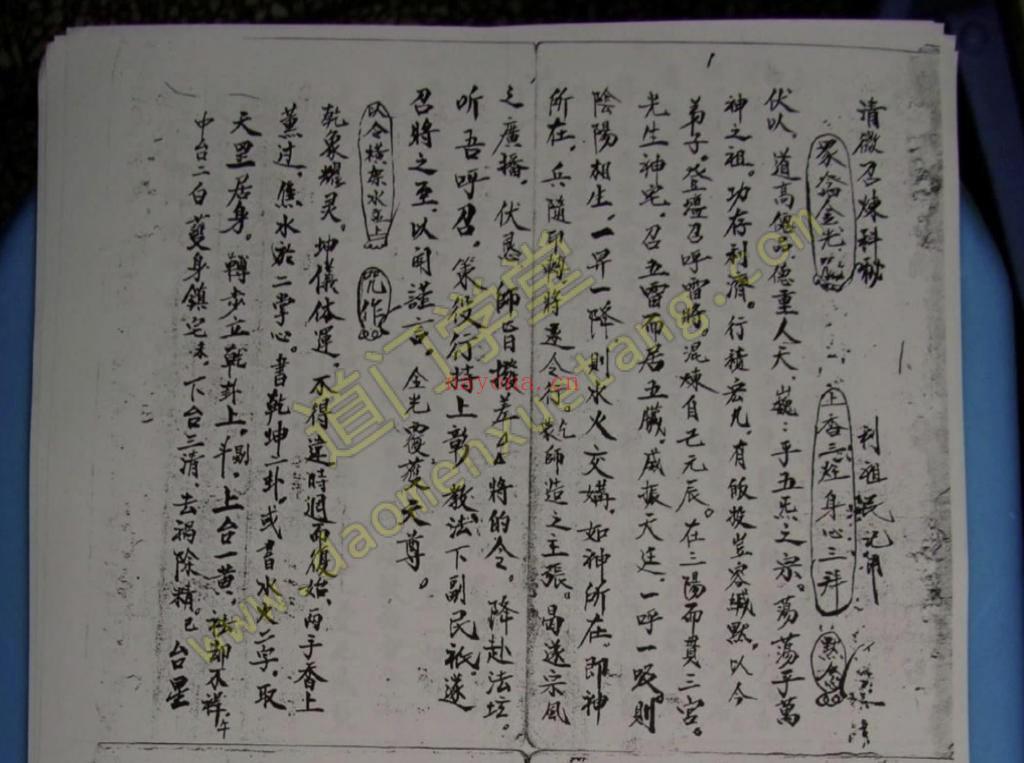 1
清微召煉科秘 利祖民記用
上香三炷身心三拜 默念
伏以、道高德 德重人天 巍:乎五炁之宗。蕩蕩乎萬
神之祖。功存利濟。行積宏 有皈投豈容緘默。以今
弟子。登壇召呼雷將。混煉自己元辰。在三陽而貫三宮。
光生神宅。召五雷而居五臟。威振天廷、一呼一吸。則
陰陽相生、一昇一降則水火交媾、如神所在、即神
所在、兵隨印轉將逐令行。乾師造之主張。曷遂宗風
之廣播、伏恳 師旨撥差 將的令。降赴法坛。
听吾呼召。策役行持上彰教法下副民祇、遂
召將之至、以開謹 、金光覆護天尊。
以令橫架水盂上 咒作
乾象耀灵。坤儀体運、不得違時週而復始、两手香上
薰过。焦水於二掌心。書乾坤二卦。或書水火二字、取
天罡居身。轉步立乾卦上。 斗、上台一黄、祛却不祥午
中台二白 身鎮宅未。下台三清、去禍除精。巳 台星
www.daomenxuetang.com
道门学堂
nayona.cn